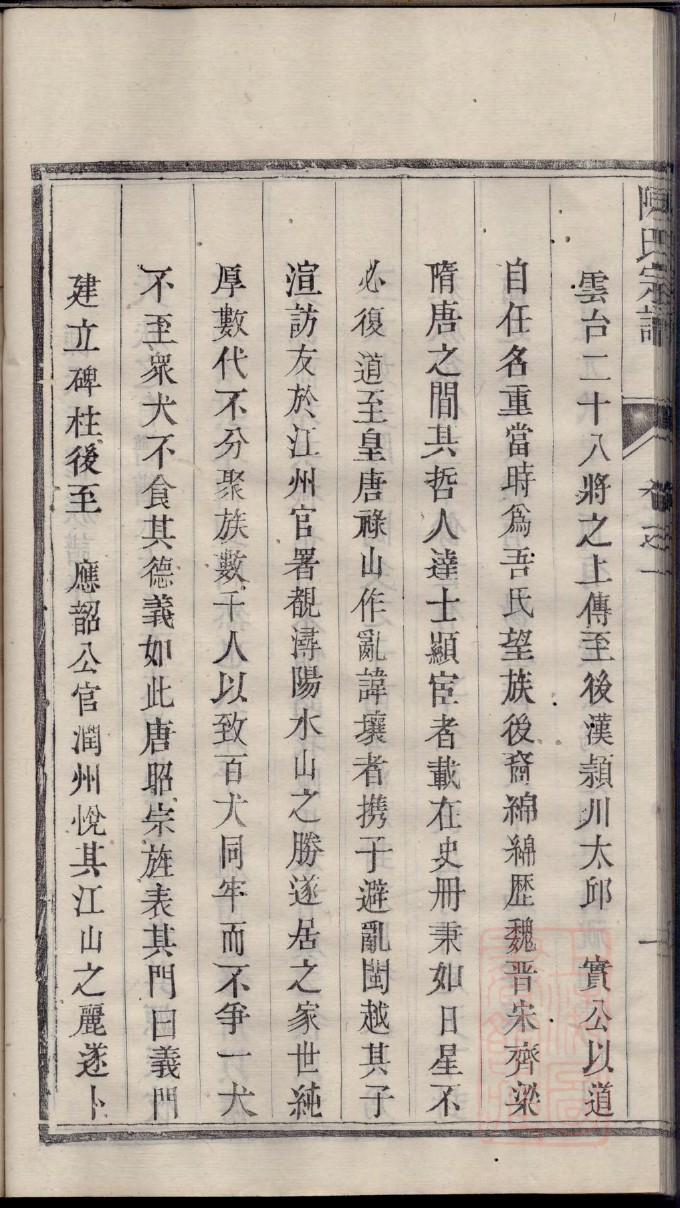 陳氏宗譜
卷之一
一
雲台二十八將之上傳至後漢潁川太邱　實公以道
自任名重當時爲吾氏望族後裔綿綿歷魏晋宋齊梁
隋唐之間其哲人達士顯宦者載在史冊秉如日星不
必復道至皇唐祿山作亂諱壤者携子避亂閩越其子
渲訪友於江州官署覩潯陽水山之勝遂居之家世純
厚數代不分聚族數千人以致百犬同牢而不爭一犬
不至衆犬不食其德義如此唐昭宗旌表其門曰義門
建立碑柱後至　應韶公官潤州悅其江山之麗遂卜